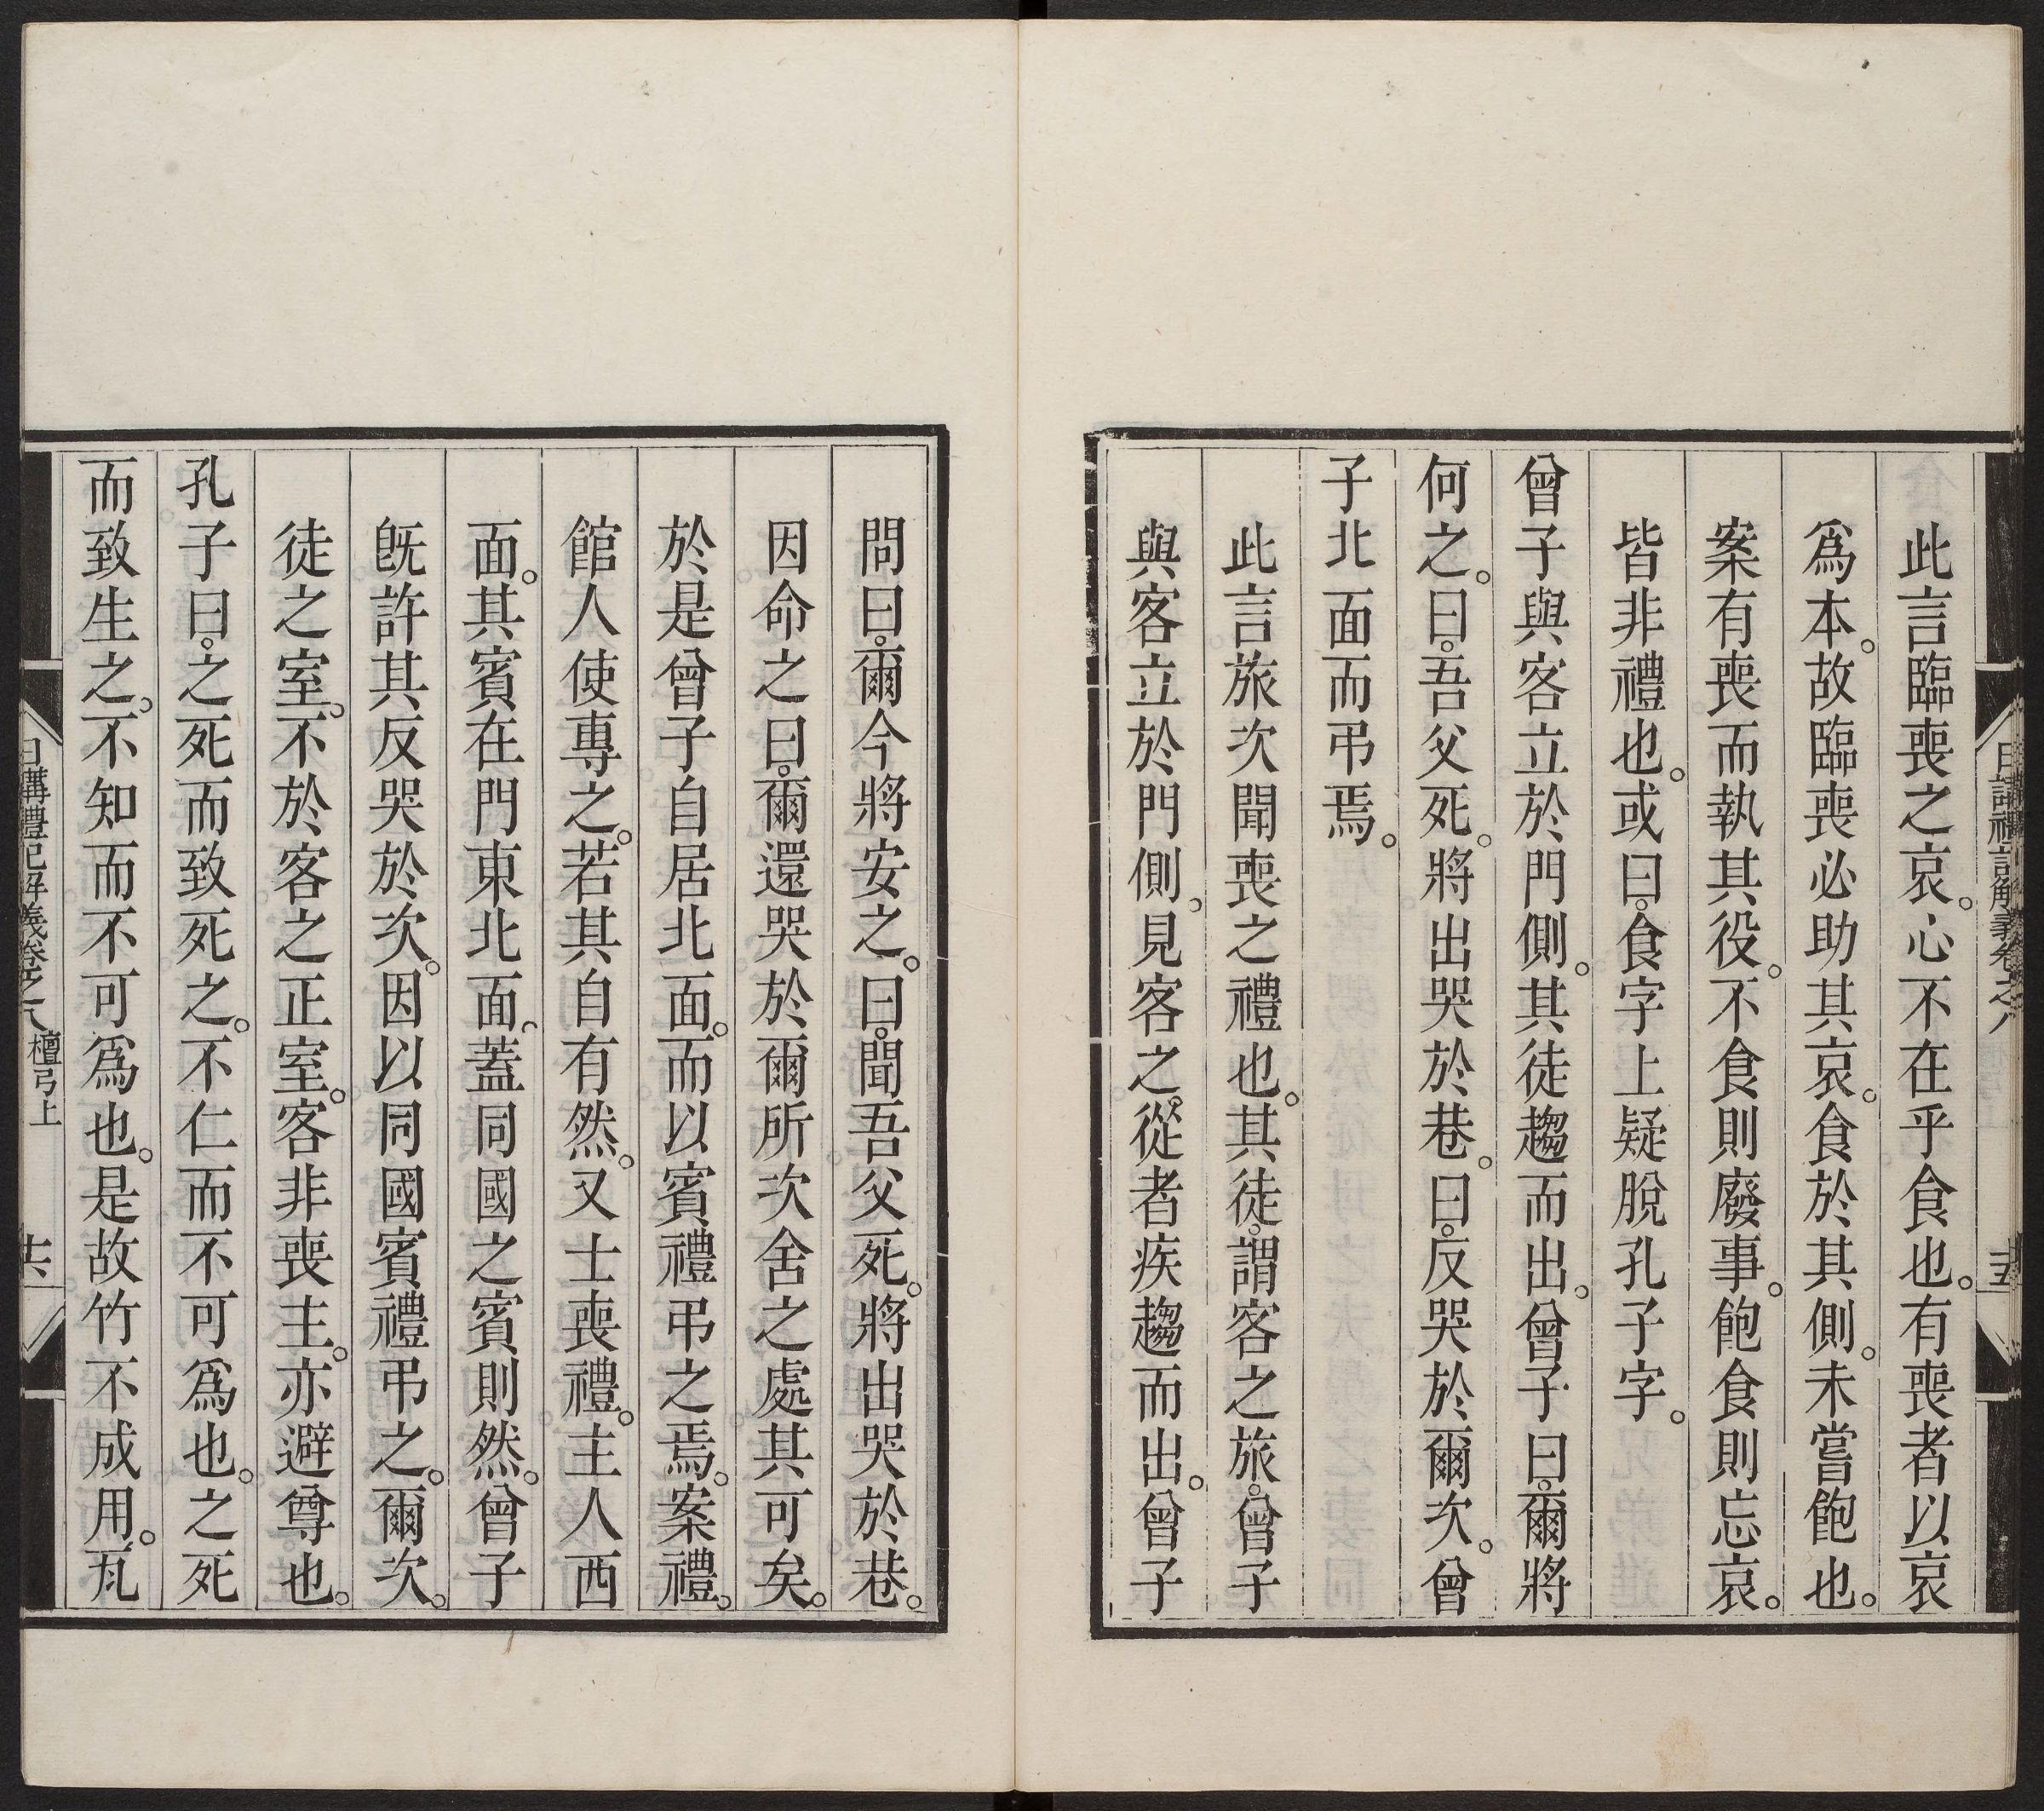 日講禮記解義卷之八
十五
此言臨喪之哀。心不在乎食也。有喪者以哀
爲本。故臨喪必助其哀。食於其側。未嘗飽也。
案有喪而執其役。不食則廢事。飽食則忘哀。
皆非禮也。或曰。食字上疑脫孔子字。
曾子與客立於門側。其徒趨而出。曾子曰。爾將
何之。曰。吾父死。將出哭於巷。曰。反哭於爾次。曾
子北面而弔焉。
此言旅次聞喪之禮也。其徒。謂客之旅。曾子
與客立於門側。見客之從者疾趨而出。曾子
問曰。爾今將安之。曰。聞吾父死。將出哭於巷。
因命之曰。爾還哭於爾所次舍之處其可矣。
於是曾子自居北面。而以賓禮弔之焉。案禮。
館人使專之。若其自有然。又士喪禮。主人西
面。其賓在門東北面。蓋同國之賓則然。曾子
旣許其反哭於次。因以同國賓禮弔之。爾次。
徒之室。不於客之正室。客非喪主。亦避尊也。
孔子曰。之死而致死之。不仁而不可爲也。之死
而致生之。不知而不可爲也。是故竹不成用。瓦
日講禮記解義卷之八 檀弓上
十六